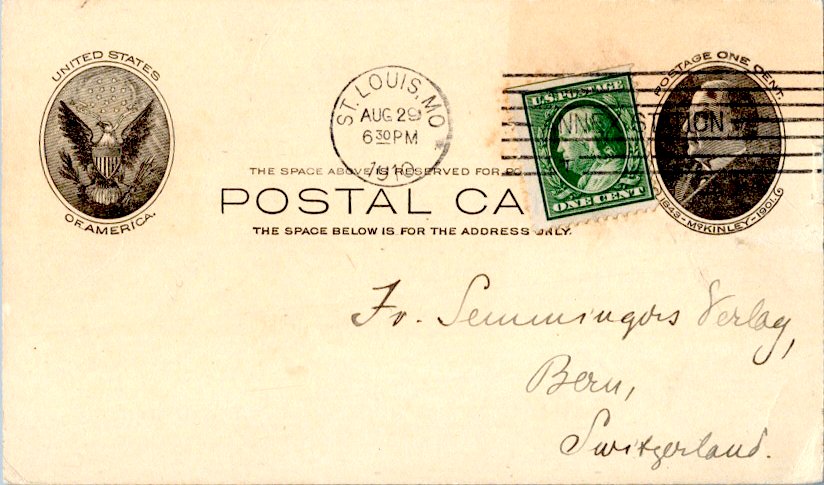 UNITED STATES
OF AMERICA.
ST. LOUIS, MO
AUG 29
6 30 PM
1910
STATION
U.S. POSTAGE
ONE CENT
POSTAGE ONE CENT.
1843-McKINLEY-1901.
THE SPACE ABOVE IS RESERVED FOR
POSTAL CA
THE SPACE BELOW IS FOR THE ADDRESS ONLY.
Fr. Semmingers Verlag,
Bern,
Switzerland.